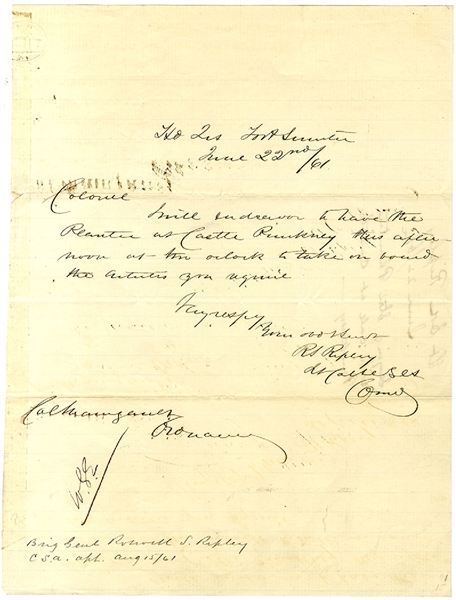 Hd Qrs Fort Sumter
June 22nd/61
Colonel
I will endeavor to have the
Planter at Castle Pinkney this after-
noon at two oclock to take on board
the articles you require
Very respy
Your obd Servt
R S Ripley
Lt Col
Comdg
Col Manigault
Ordnance
Brig Genl Roswell S. Ripley
C S A. apt. Aug 15/61